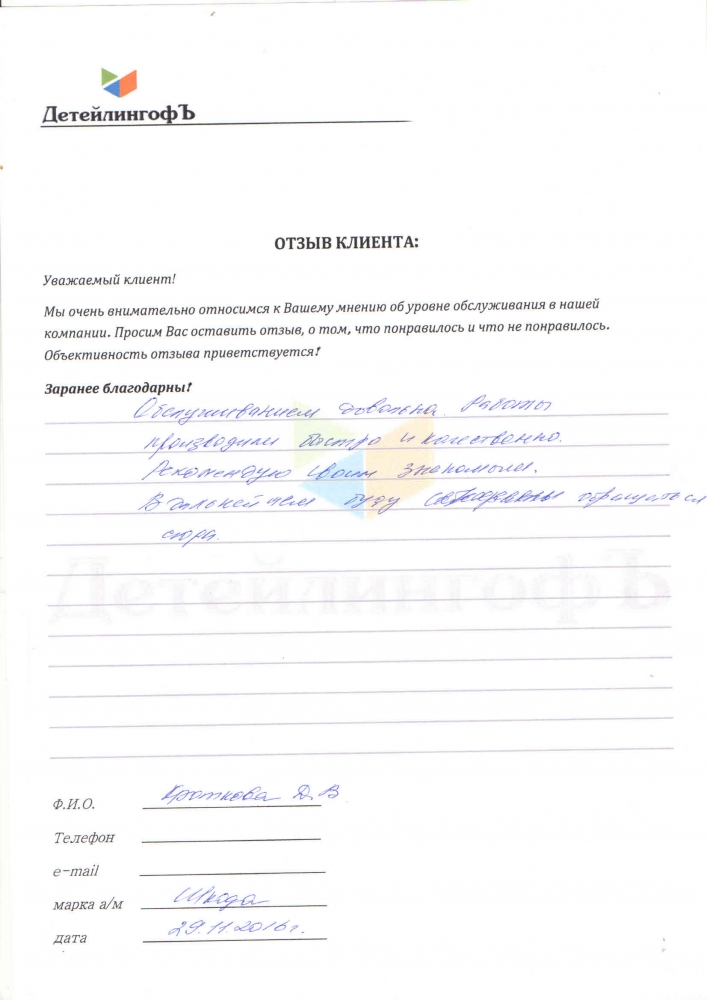 ДетейлингофЪ
ОТЗЫВ КЛИЕНТА:
Уважаемый клиент!
Мы очень внимательно относимся к Вашему мнению об уровне обслуживания в нашей
компании. Просим Вас оставить отзыв, о том, что понравилось и что не понравилось.
Объективность отзыва приветствуется!
Заранее благодарны!
Обслуживанием довольна. Работы
производили быстро и качественно.
Рекомендую своим знакомым.
В дальнейшем буду обращаться
сюда.
ДетейлингофЪ
Ф.И.О. Кроткова Д. В
Телефон
e-mail
марка а/м Шкода
дата 29.11.2016г.